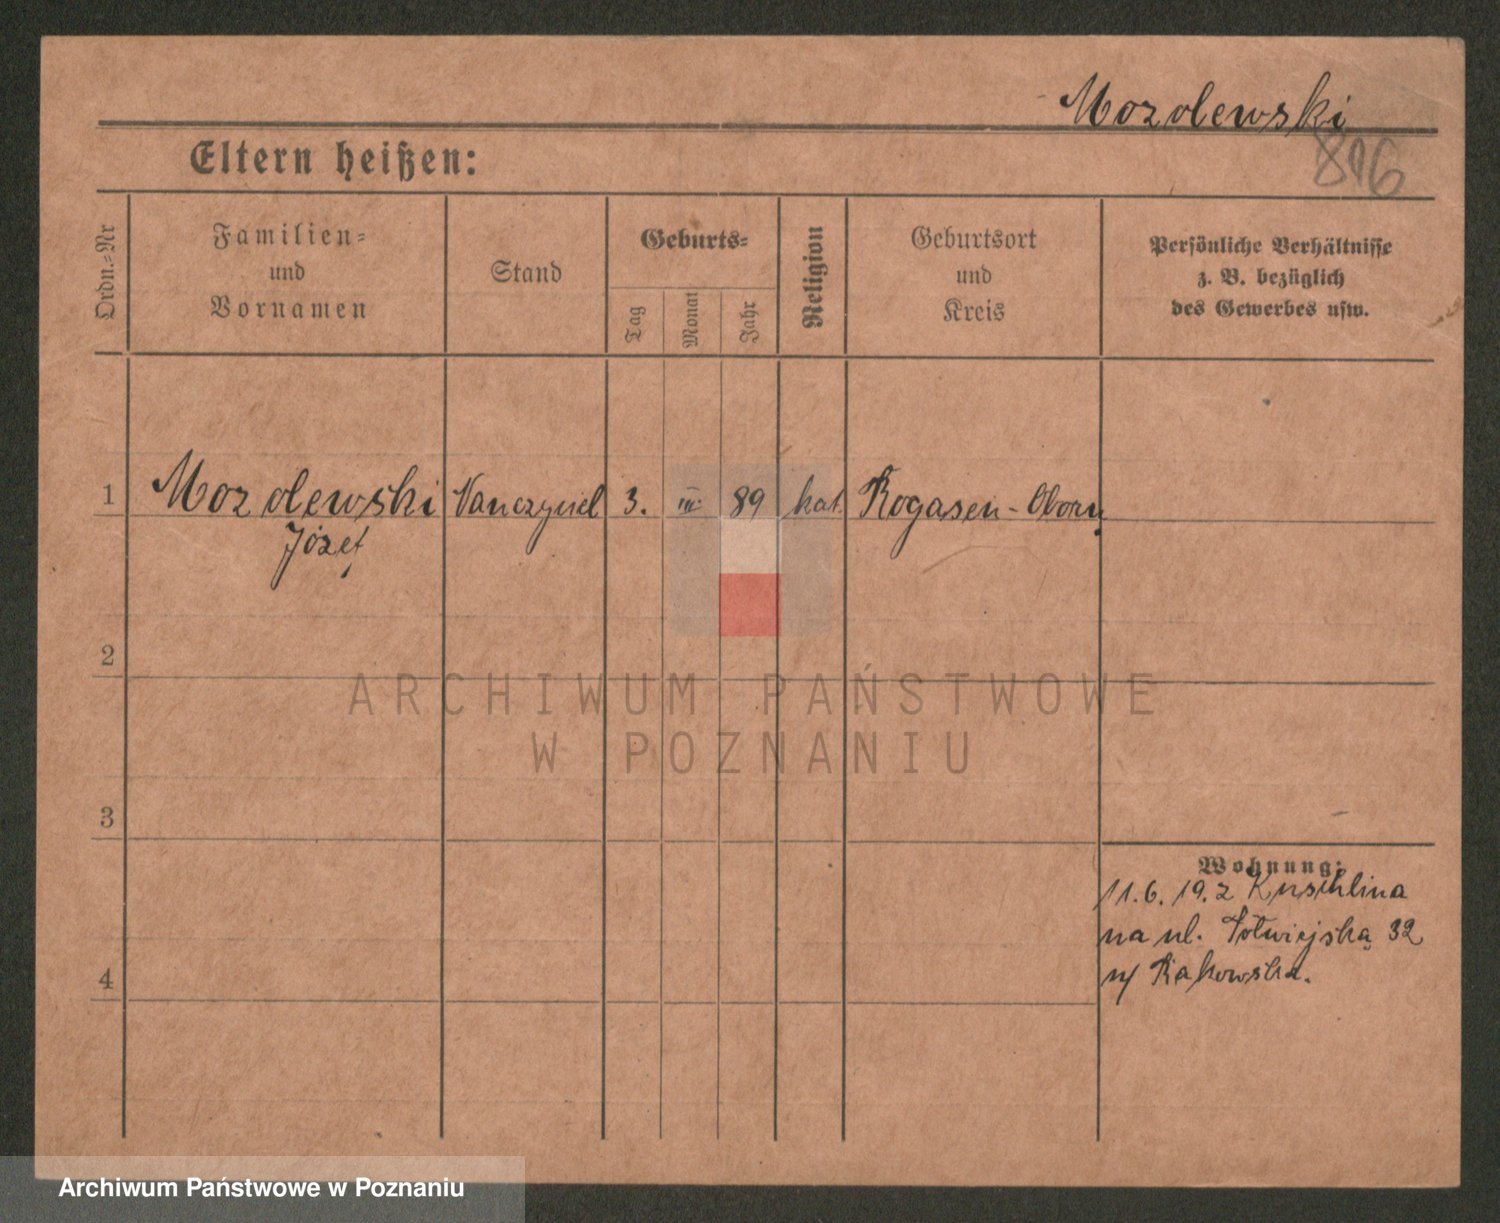 Mozolewski
Eltern heißen:
896
Ordn.=Nr
Familien=
und
Vornamen
Stand
Geburts=
Tag
Monat
Jahr
Religion
Geburtsort
und
Kreis
Persönliche Verhältnisse
z. B. bezüglich
des Gewerbes usw.
1 Mozolewski 3. III. 89 kat. Rogasen - Oborn.
Józef
2
ARCHIWUM PAŃSTWOWE
W POZNANIU
3
Wohnung:
11. 6. 19. z
na ul. Półwiejską 32
4
Rakowska.
Archiwum Państwowe w Poznaniu